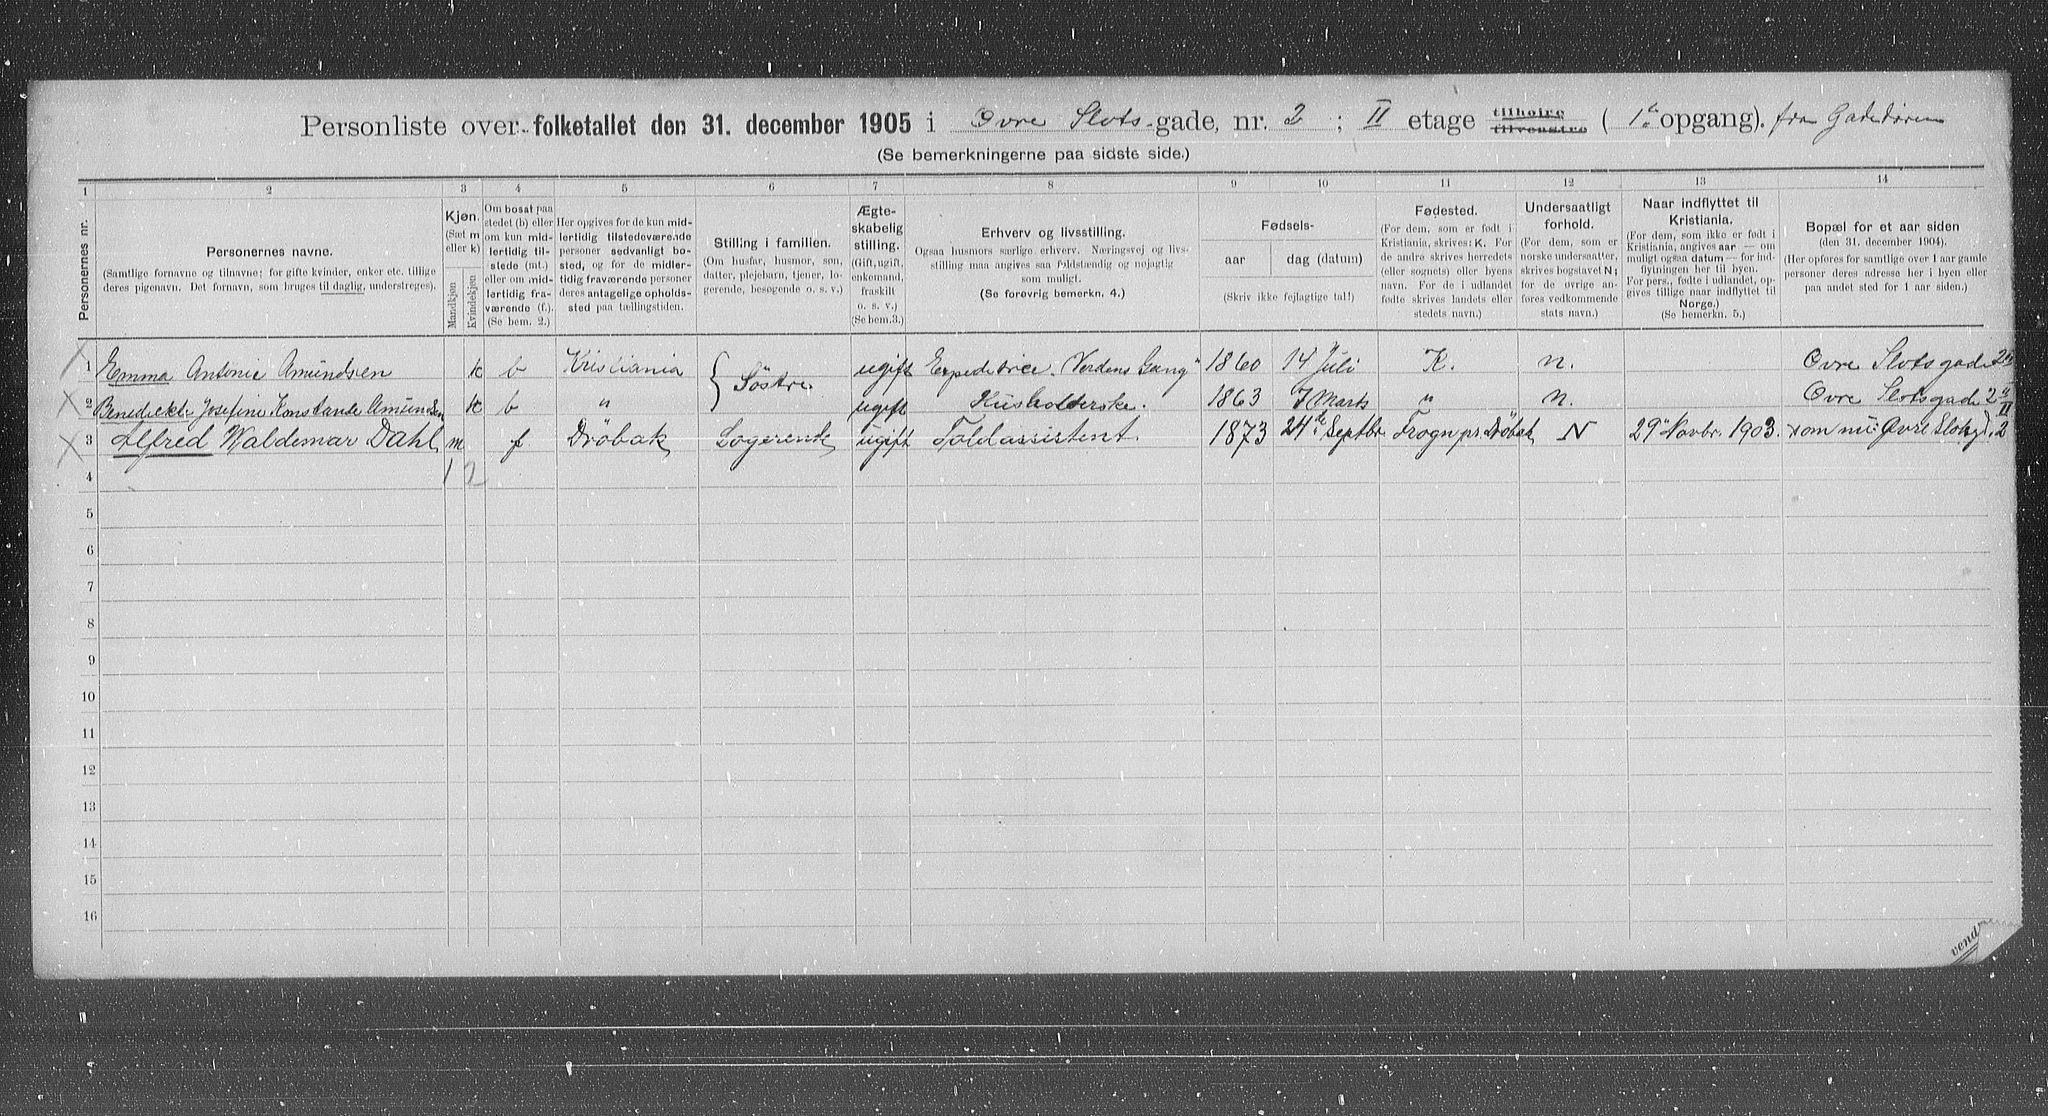 Personliste over folketallet den 31. december 1905 i Øvre Slots-gade, nr. 2; II etage tilhøire tilvenstre (1ste opgang). fra Gadedøren
(Se bemerkningerne paa sidste side.)
1 2 3 4 5 6 7 8 9 10 11 12 13 14
Personernes nr.
Personernes navne.
(Samtlige fornavne og tilnavne; for gifte kvinder, enker etc. tillige
deres pigenavn. Det fornavn, som bruges til daglig, understreges).
Kjøn.
(Sæt m
eller k)
Mandkjøn
Kvindekjøn
Om bosat paa
stedet (b) eller
om kun mid-
lertidig til-
stede (mt.)
eller om mid-
lertidig fra-
værende (f.).
(Se bem. 2.)
Her opgives for de kun mid-
lertidig tilstedeværende
personer sedvanligt bo-
sted, og for de midler-
tidig fraværende personer
deres antagelige opholds-
sted paa tællingstiden.
Stilling i familien.
(Om husfar, husmor, søn,
datter, plejebarn, tjener, lo-
gerende, besøgende o. s. v.)
Ægte-
skabelig
stilling.
(Gift, ugift,
enkemand,
fraskilt
o. s. v.)
(Se bem.3.)
Erhverv og livsstilling.
Ogsaa husmors særlige erhverv. Næringsvej og livs-
stilling maa angives saa fuldstændig og nøjagtig
som muligt.
(Se forøvrig bemerkn. 4.)
Fødsels-
aar
dag (datum)
(Skriv ikke fejlagtige tal!)
Fødested.
(For dem, som er født i
Kristiania, skrives: K. For
de andre skrives herredets
(eller sognets) eller byens
navn. For de i udlandet
fødte skrives landets eller
stedets navn.)
Undersaatligt
forhold.
(For dem, som er
norske undersaatter,
skrives bogstavet N;
for de øvrige an-
føres vedkommende
stats navn.)
Naar indflyttet til
Kristiania.
(For dem, som ikke er født i
Kristiania, angives aar — om
muligt ogsaa datum — for ind-
flytningen her til byen.
For pers., fødte i udlandet, op-
gives tillige naar indflyttet til
Norge.)
(Se bemerkn. 5.)
Bopæl for et aar siden
(den 31. december 1904).
(Her opføres for samtlige over 1 aar gamle
personer deres adresse her i byen eller
paa andet sted for 1 aar siden.)
1 Emma Antonie Amundsen k b Kristiania Søstre ugift Expeditrice "Verdens Gang" 1860 14 Juli K. n. Ovre Slotsgade 2 II
2 Benedikte Josefine Konstance Amundsen k b " ugift Husholderske. 1863 7 Marts " n. Ovre Slotsgade 2 II
3 Alfred Waldemar Dahl m f Drøbak Logerende ugift Toldassistent. 1873 24de Septbr. Frogn pr. Drøbak N 29 Novbr. 1903. som nu: Øvre Slotsgd. 2
1 2
4
5
6
7
8
9
10
11
12
13
14
15
16
vend